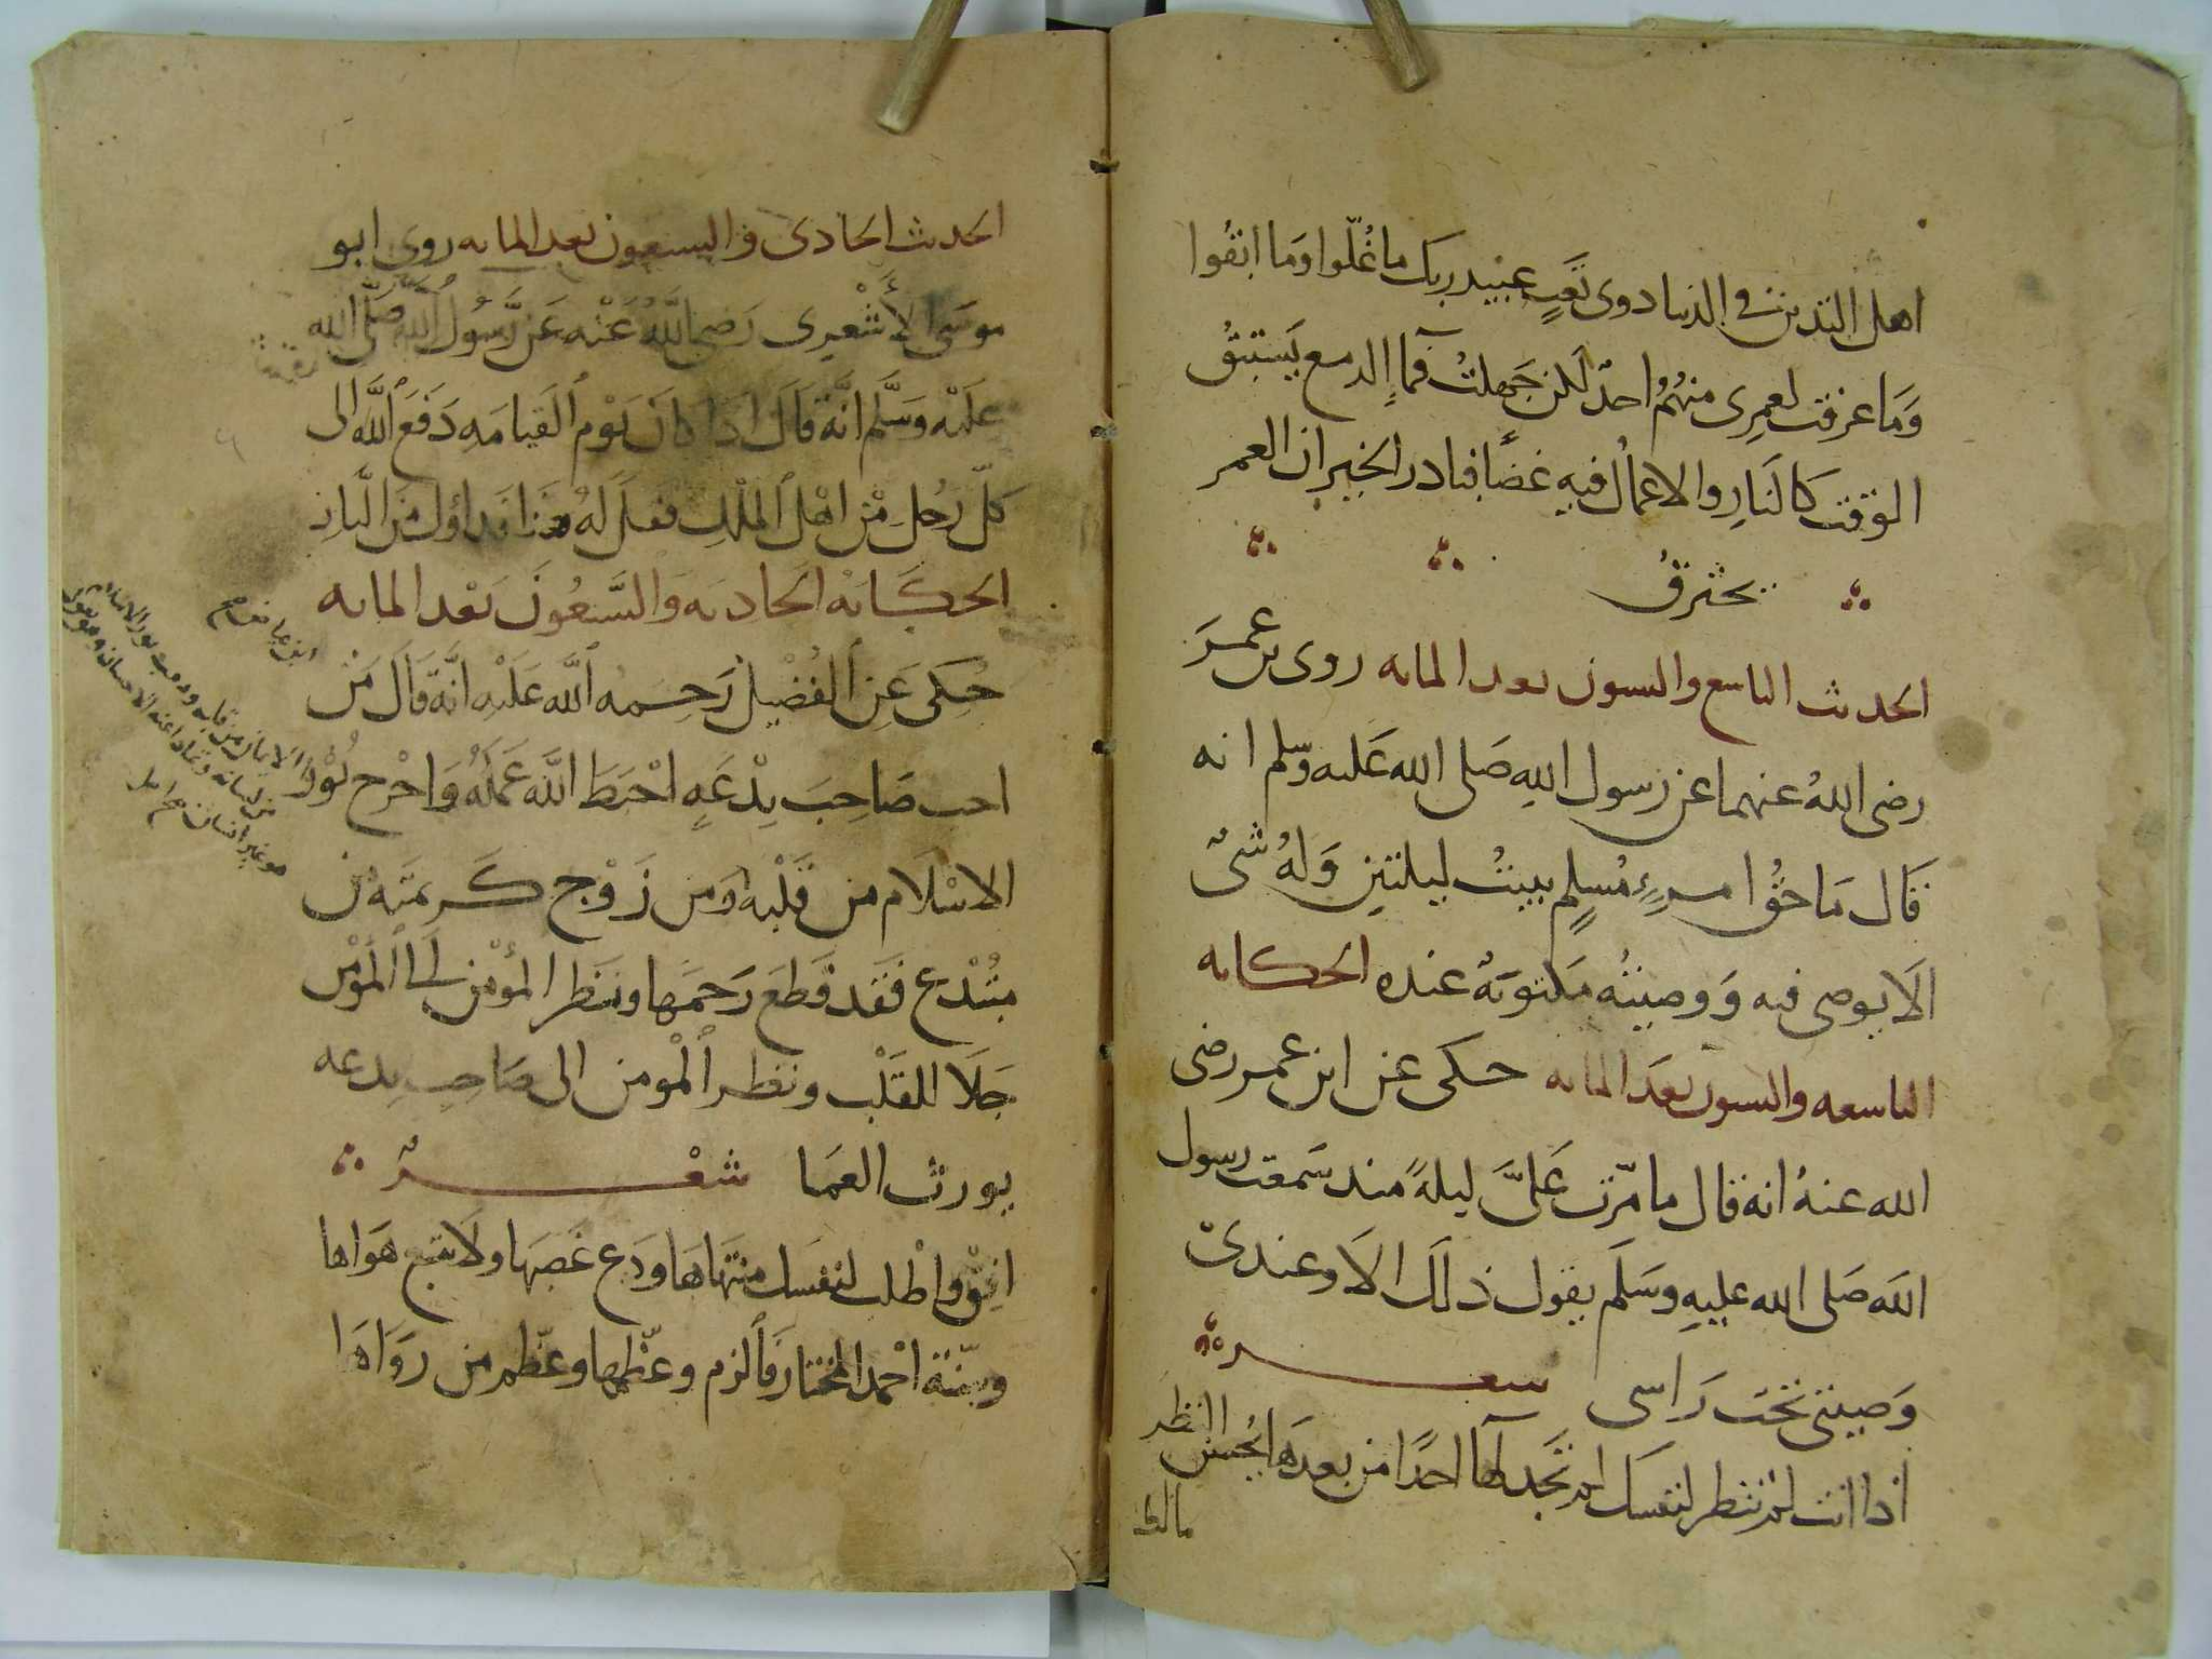 اهل التدين في الدنيا ذوى تعب عبيد ربك ما غلوا وما ابقوا
وما عرفت لعمرى منهم احد لكن جهلت فما الدمع يستبق
الوقت كالنار والاعمال فيه غضًا فبادر الخير ان العمر
يحترق
الحديث التاسع والستون بعد المايه روى بن عمر
رضى الله عنهما عن رسول الله صلى الله عليه وسلم انه
قال ما حق امرءٍ مسلم يبيت ليلتين وله شئ
الا يوصى فيه ووصيته مكتوبة عنده الحكايه
التاسعه والستون بعد المايه حكى عن ابن عمر رضى
الله عنه انه قال ما مرّت علىّ ليلةً منذ سمعت رسول
الله صلى الله عليه وسلم يقول ذلك الا وعندى
وصيتى تحت راسى شعر
اذا انت لم تنظر لنفسك لم تجد لها احدًا من بعدها يحسن النظر
الحديث الحادى والسبعون بعد المايه روى ابو
موسى الأشعرى رضى الله عنه عن رسول الله صلى الله
عليه وسلم انه قال اذا كان يوم القيامه دفع الله الى
كل رجل من اهل الملل فقال له هذا فداؤك من النار
الحكاية الحاديه والسبعون بعد المايه
حكى عن الفضيل رحمه الله عليه انه قال من
احب صاحب بدعةٍ احبط الله عمله واخرج نور
الاسلام من قلبه ومن زوج كريمته من
مبتدع فقد قطع رحمها ونظر المؤمن الى المؤمن
جلا للقلب ونظر المومن الى صاحب بدعه
يورث العما شعر
افق واطلب لنفسك منتهاها ودع غصبها ولا تتبع هواها
وسنة احمد المختار فالزم وعظمها وعظم من رواها